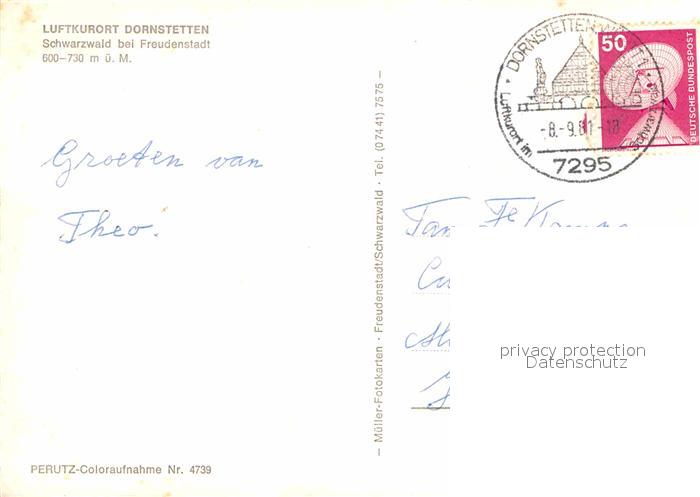 LUFTKURORT DORNSTETTEN
Schwarzwald bei Freudenstadt
600–730 m ü. M.
Groeten van
Theo.
PERUTZ-Coloraufnahme Nr. 4739
– Müller-Fotokarten · Freudenstadt/Schwarzwald · Tel. (0 74 41) 75 75 –
DORNSTETTEN
Luftkurort im Schwarzwald
-8.-9.81-18
7295
50
DEUTSCHE BUNDESPOST
Fam
privacy protection
Datenschutz